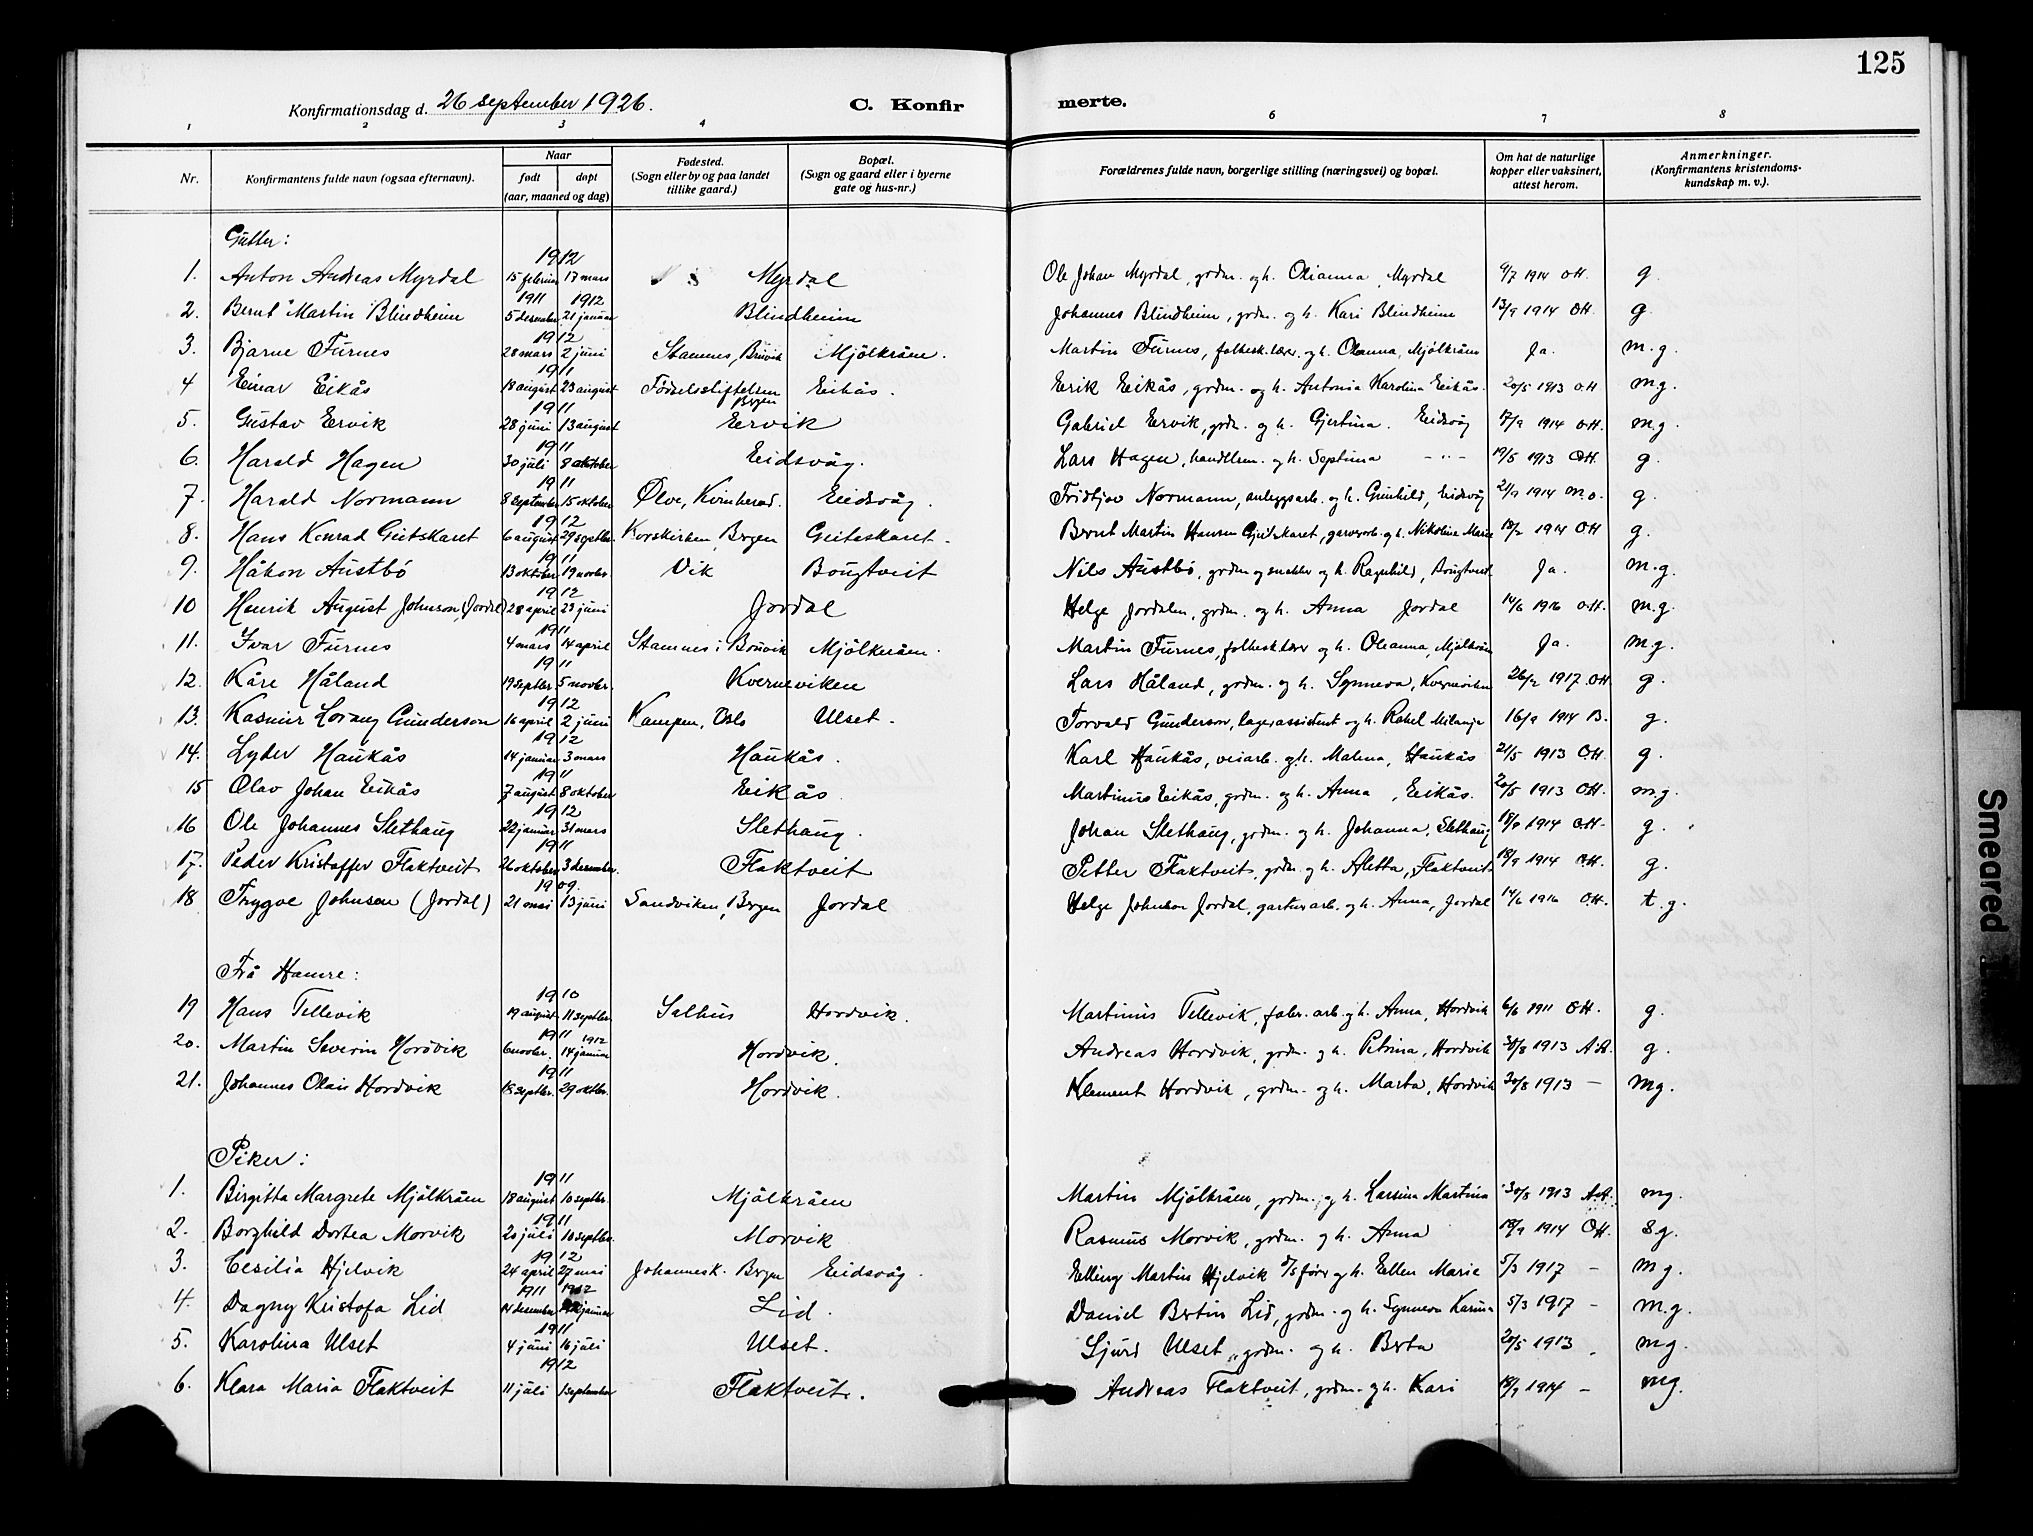 125
Konfirmationsdag d. 26 september 1926. C. Konfir merte.
1 2 3 4 6 7 8
Nr. Konfirmantens fulde navn (ogsaa efternavn). Naar født døpt (aar, maaned og dag) Fødested. (Sogn eller by og paa landet tillike gaard.) Bopæl. (Sogn og gaard eller i byerne gate og hus-nr.) Forældrenes fulde navn, borgerlige stilling (næringsvei) og bopæl. Om hat de naturlige kopper eller vaksinert, attest herom. Anmerkninger. (Konfirmantens kristendoms-kundskap m. v.).
Gutter:
1. Anton Andreas Myrdal 1912 15 februar 17 mars Myrdal Ole Johan Myrdal, grdm. og h. Olianna, Myrdal 9/7 1914 O.H. g.
2. Bernt Martin Blindheim 1911 5 desember 1912 21 januar Blindheim Johannes Blindheim, grdm. og h. Kari Blindheim 13/9 1914 O.H. g.
3. Bjarne Furnes 1912 28 mars 2 juni Stamnes, Bruvik Mjölkråen. Martin Furnes, folkesk.lærer og h. Oleanna, Mjölkråen Ja. m.g.
4 Einar Eikås 1911 18 august 23 august Fødselsstiftelsen Bergen Eikås. Erik Eikås, grdm. og h. Antonia Karolina Eikås. 20/5 1913 O.H m.g.
5. Gustav Ervik 1911 28 juni 13 august Ervik Gabriel Ervik, grdm. og h. Gjertina. Eidsvåg 17/9 1914 O.H. m.g.
6. Harald Hagen 1911 30 juli 8 oktober Eidsvåg. Lars Hagen, handelsm. og h. Septima -"- 19/5 1913 O.H. g.
7. Harald Normann 1911 8 september 15 oktober Ølve, Kvinherad. Eidsvåg. Fridtjov Normann, anleggsarb. og h. Gunhild, Eidsvåg 21/9 1914 M.O. g.
8. Hans Konrad Geitskaret 1912 6 august 29 septbr. Korskirken, Bergen Geiteskaret. Bernt Martin Hansen Gjeitskaret, garverarb. og h. Nikoline Marie 18/2 1914 O.H g.
9. Håkon Austbø 1911 13 oktober 19 novbr. Vik Bougtveit Nils Austbø, grdm og snekker og h. Ragnhild, Bougtveit Ja. m.g.
10 Henrik August Johnson (Jordal) 1912 28 april 23 juni Jordal Helge Jordalen, grdm. og h. Anna Jordal 14/6 1916 O.H. m.g.
11. Ivar Furnes 1911 4 mars 14 april Stamnes i Bruvik Mjölkråen. Martin Furnes, folkesk.lærer og h. Oleanna, Mjölkråen Ja. m.g.
12. Kåre Håland 1911 19 septbr. 5 novbr. Kverneviken Lars Håland, grdm. og h. Synneva, Kverneviken 26/2 1917 O.H g.
13. Kasmir Lorang Gunderson 1912 16 april 2 juni Kampen, Oslo Ulset. Torvald Gunderson, lagerassistent og h. Rakel Milanja 16/9 1914 B. g.
14. Lyder Haukås 1912 14 januar 3 mars Haukås. Karl Haukås, veiarb. og h. Malena, Haukås 21/5 1913 O.H. g.
15 Olav Johan Eikås 1911 7 august 8 oktober Eikås Martinus Eikås, grdm. og h. Anna, Eikås. 20/5 1913 O.H. m.g.
16 Ole Johannes Slethaug 1912 22 januar 31 mars Slethaug. Johan Slethaug, grdm. og h. Johanna, Slethaug 18/9 1914 O.H. g.
17. Peder Kristoffer Flaktveit 1911 26 oktober 3 desember. Flaktveit Petter Flaktveit, grdm. og h. Aletta, Flaktveit 18/9 1914 O.H. g.
18 Trygve Johnsen (Jordal) 1909. 21 mai 13 juni Sandviken, Bergen Jordal Helge Johnson Jordal, garturarb. og h. Anna, Jordal 14/6 1916 O.H. t.g.
Frå Hamre:
19 Hans Tellevik 1910 19 august 11 septbr. Salhus Hordvik. Martinus Tellevik, fabr. arb. og h. Anna, Hordvik 6/6 1911 O.H. g.
20. Martin Severin Hordvik 1911 6 novbr. 1912 14 januar Hordvik. Andreas Hordvik, grdm. og h. Petrina, Hordvik 30/8 1913 A.A. g.
21. Johannes Olai Hordvik 1911 18 septbr. 29 oktbr. Hordvik. Klement Hordvik, grdm. og h. Marta, Hordvik 30/8 1913 - mg.
Piker:
1. Birgitta Margrete Mjölkråen 1911 18 august 10 septbr. Mjölkråen Martin Mjölkråen, grdm. og h. Larsina Martina 30/8 1913 A.A. mg.
2. Borghild Dortea Morvik 1911 20 juli 10 septbr. Morvik Rasmus Morvik, grdm. og h. Anna 18/9 1914 O.H. s.g.
3. Cesilia Hjelvik 1912 24 april 27 mai Johannesk. Bergen Eidsvåg. Elling Martin Hjelvik d/s fører og h. Ellen Marie 5/3 1917 - m g.
4. Dagny Kristofa Lid 1911 14 desember 1912 januar Lid. Daniel Bertin Lid, grdm. og h. Synneva Karina 5/3 1917 - m.g.
5. Karolina Ulset 1911 4 juni 16 juli Ulset. Sjurd Ulset, grdm. og h. Berta 20/5 1913 mg.
6. Klara Maria Flaktveit 1912 11 juli 1 september Flaktveit. Andreas Flaktveit, grdm. og h. Kari 18/9 1914 - mg.
Smeared